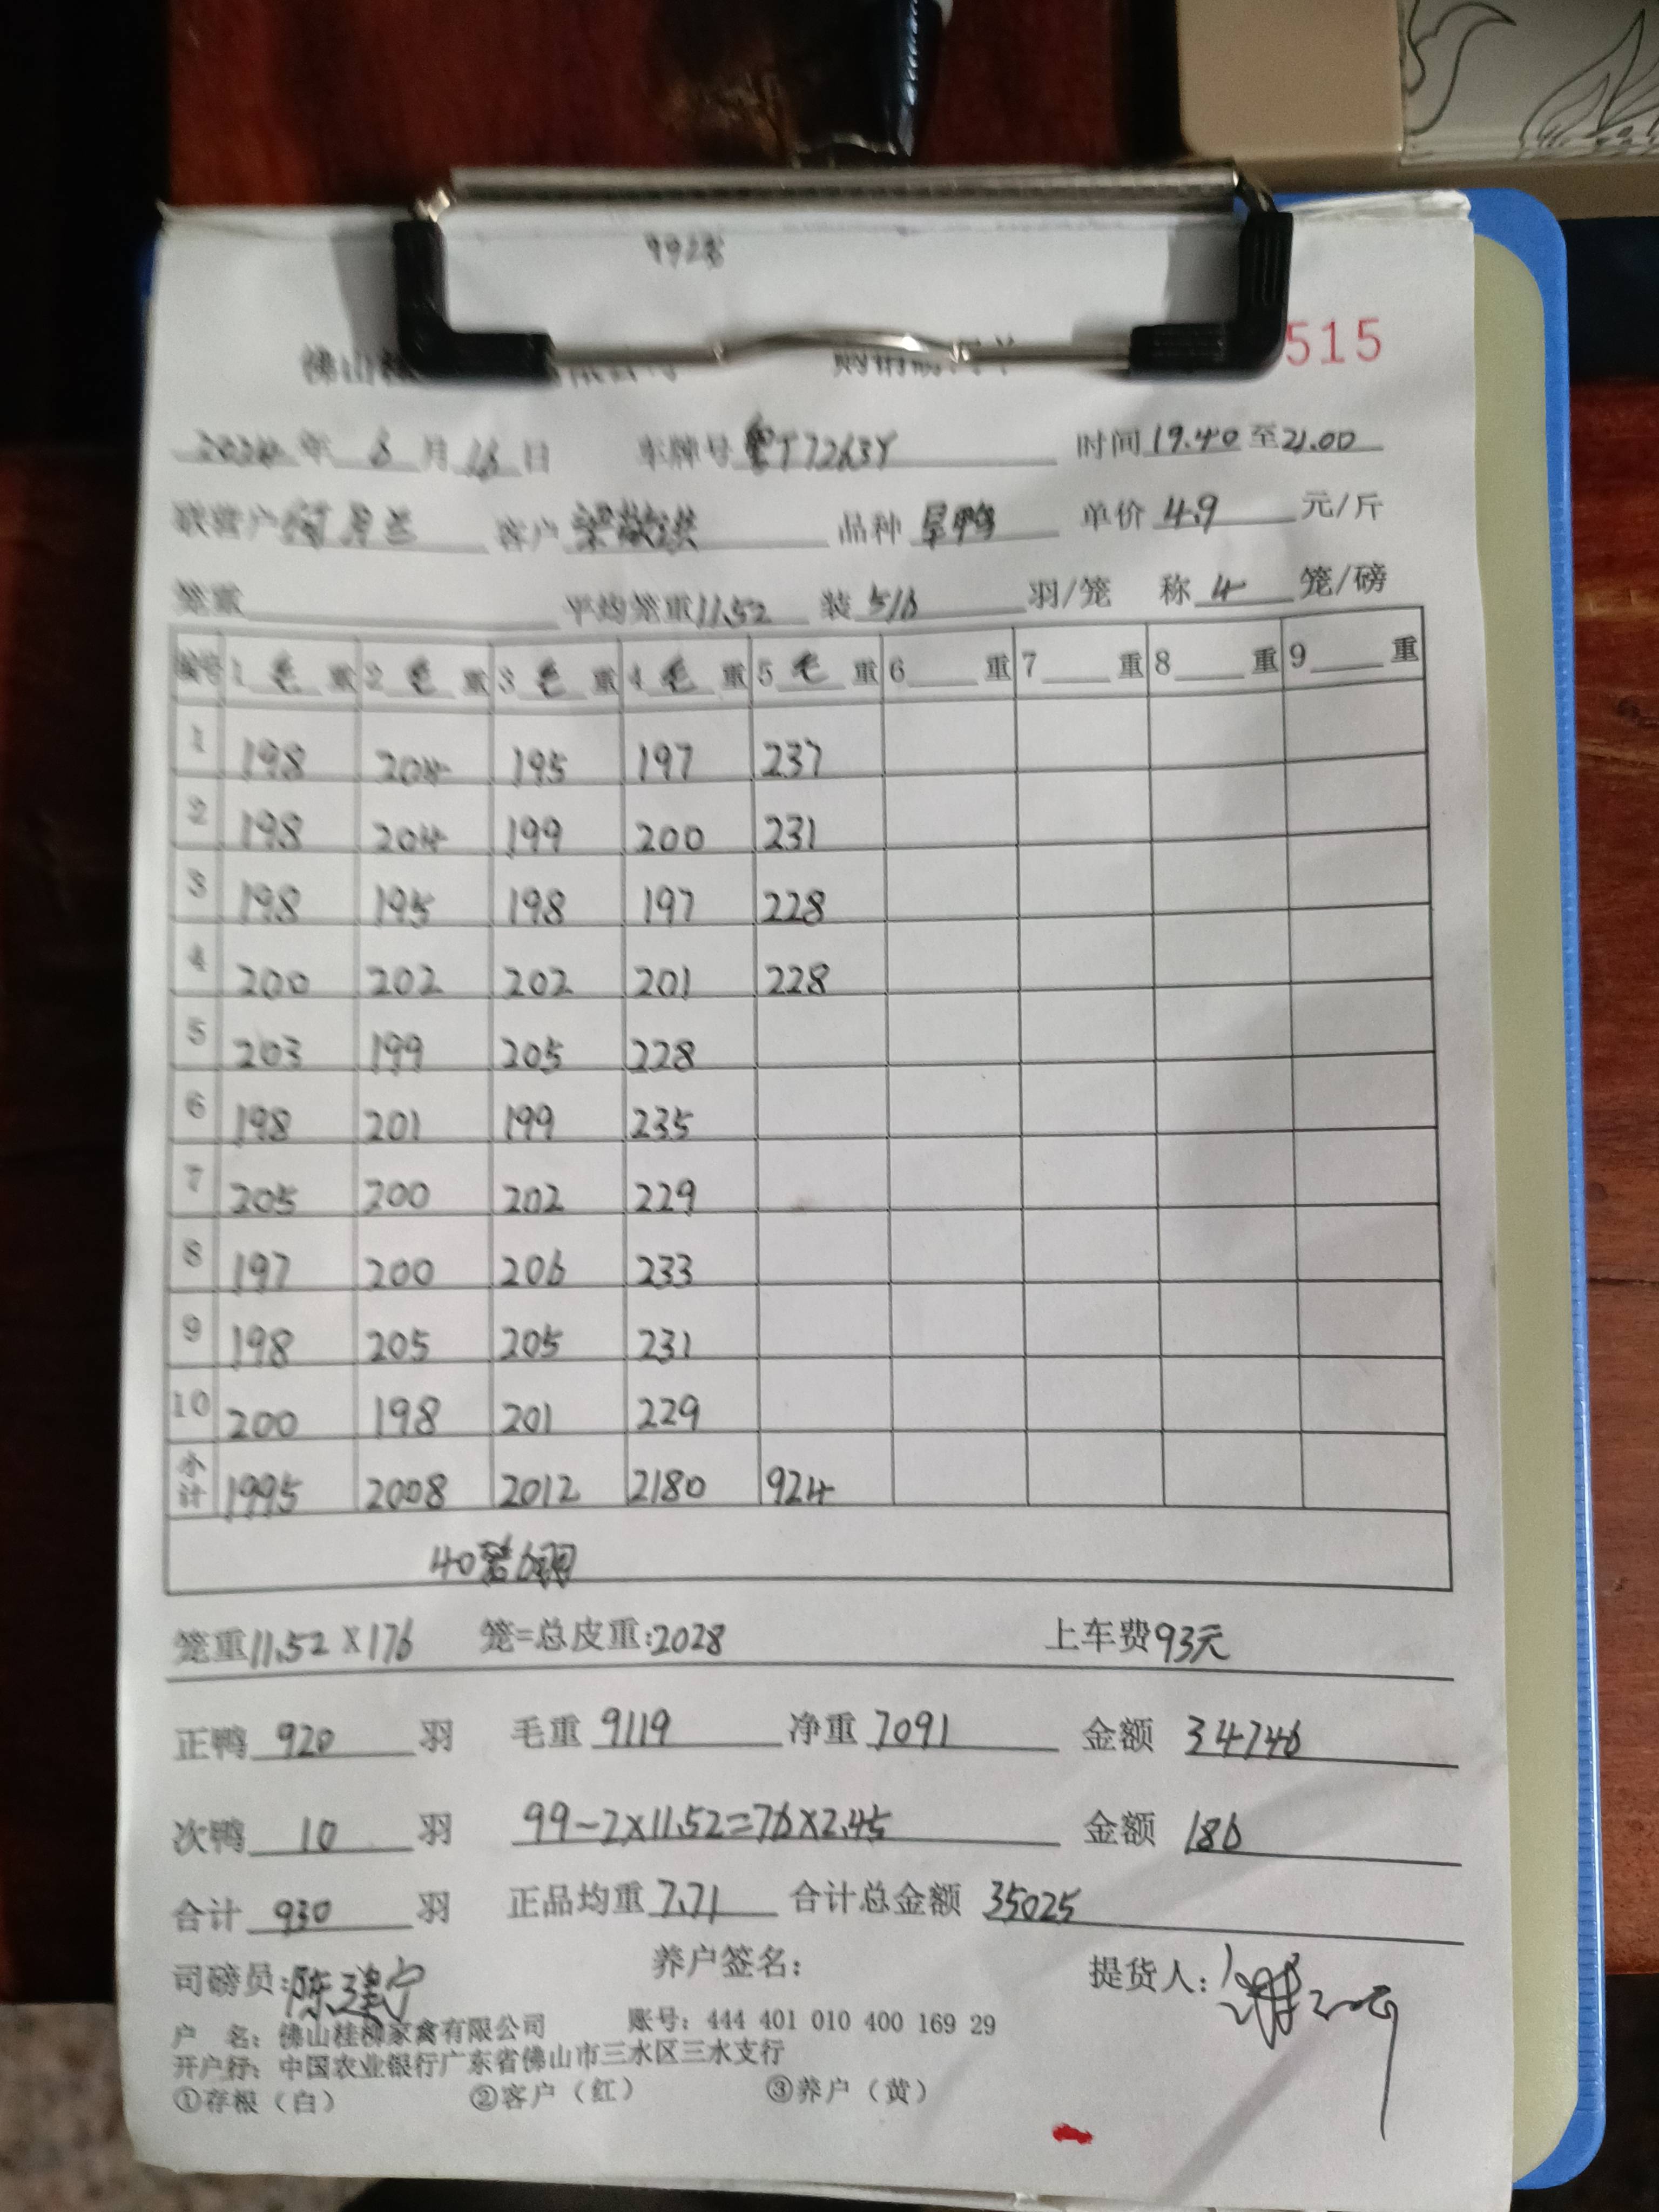 515
2024年 6月16日 车牌号粤T7263Y 时间19.40至21.00
联营户 客户梁敬洪 品种旱鸭 单价4.9元/斤
笼重 平均笼重11.52 装5/6羽/笼 称4笼/磅
编号 1毛重 2毛重 3毛重 4毛重 5毛重 6重 7重 8重 9重
1 198 204 195 197 237
2 198 204 199 200 231
3 198 195 198 197 228
4 200 202 202 201 228
5 203 199 205 228
6 198 201 199 235
7 205 200 202 229
8 197 200 206 233
9 198 205 205 231
10 200 198 201 229
小计 1995 2008 2012 2180 924
40 6羽
笼重11.52X176 笼=总皮重:2028 上车费93元
正鸭 920 羽 毛重 9119 净重 7091 金额 34746
次鸭 10 羽 99-2×11.52=76×2.45 金额 186
合计 930 羽 正品均重 7.71 合计总金额 35025
司磅员:陈建宁 养户签名: 提货人:
户 名: 佛山桂柳家禽有限公司 账号: 444 401 010 400 169 29
开户行: 中国农业银行广东省佛山市三水区三水支行
①存根（白） ②客户（红） ③养户（黄）